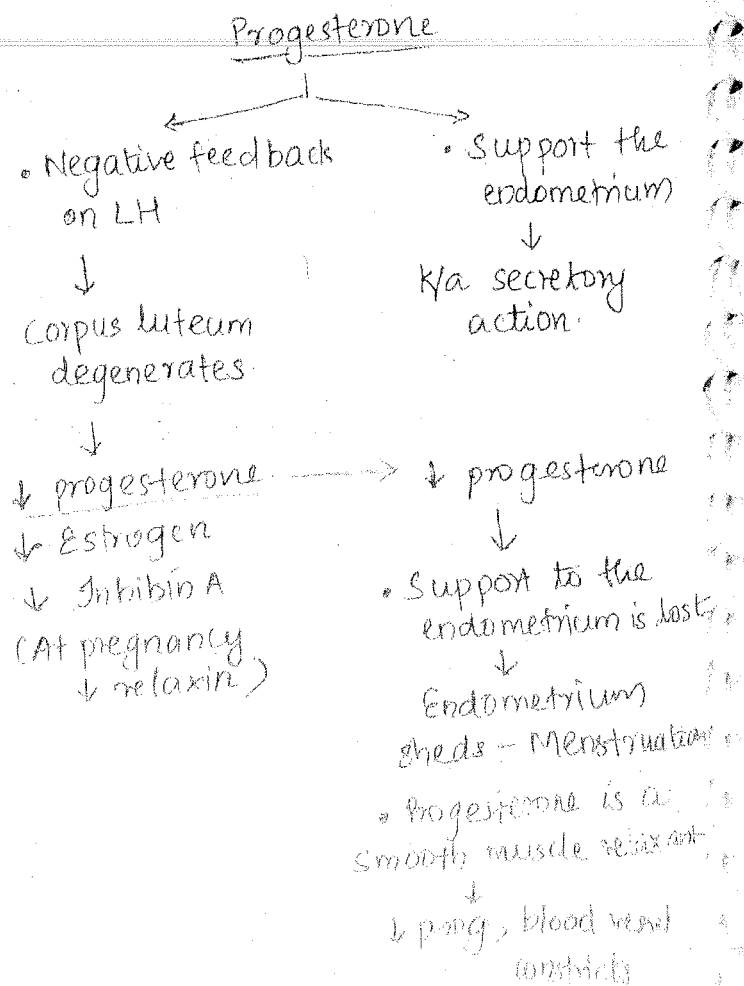 Progesterone
• Negative feedback
on LH
↓
Corpus luteum
degenerates.
↓
↓ progesterone →
↓ Estrogen
↓ Inhibin A
(At pregnancy
↓ relaxin)
• Support the
endometrium
↓
k/a secretory
action.
↓ progesterone
↓
• Support to the
endometrium is lost,
↓
Endometrium
sheds - Menstruation
• Progesterone is a
smooth muscle relaxant
↓
↓ prog, blood vessel
constricts